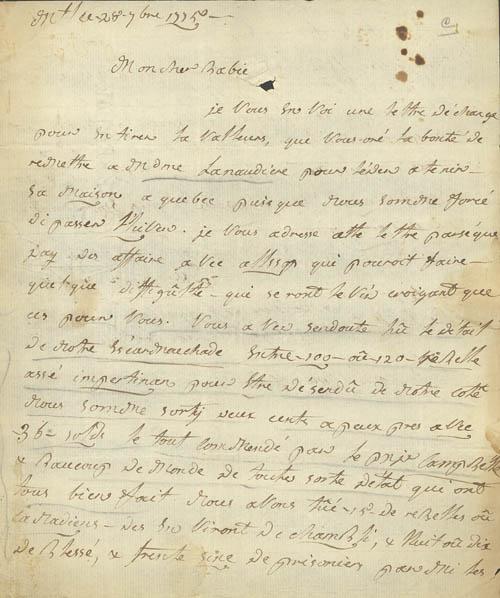 Mtl ce 28 7bre 1775
Mon cher Babie
je vous en voi une lettre déchange
pour en tirer la valleurs, que vous oré la bonté de
remettre a Mdme Lanaudiere pour léder a tenir
sa Maison a quebec puis que nous somme forcé
di passer lhiver. je vous adresse cette lettre parséque
jay des affaire avec qui pouroit faire
quelque diffiqulté que seront levé croiyant que
ces pour vous. vous avez sendoute sû le détail
de notre Entre 100 où 120 rebelle
assé impertinan pour être désendû de notre coté
nous somme sorty deux cents a peux pres avec
36 solds le tout commendé par le major Campbelle
& Beaucoup de monde de toute sorte détat qui ont
tous bien fait nous avons tûé 15 de rebelles où
Canadiens des en viront de chambli, & huit où dix
de Blessé, & trente sixe de prisoniers parmi les